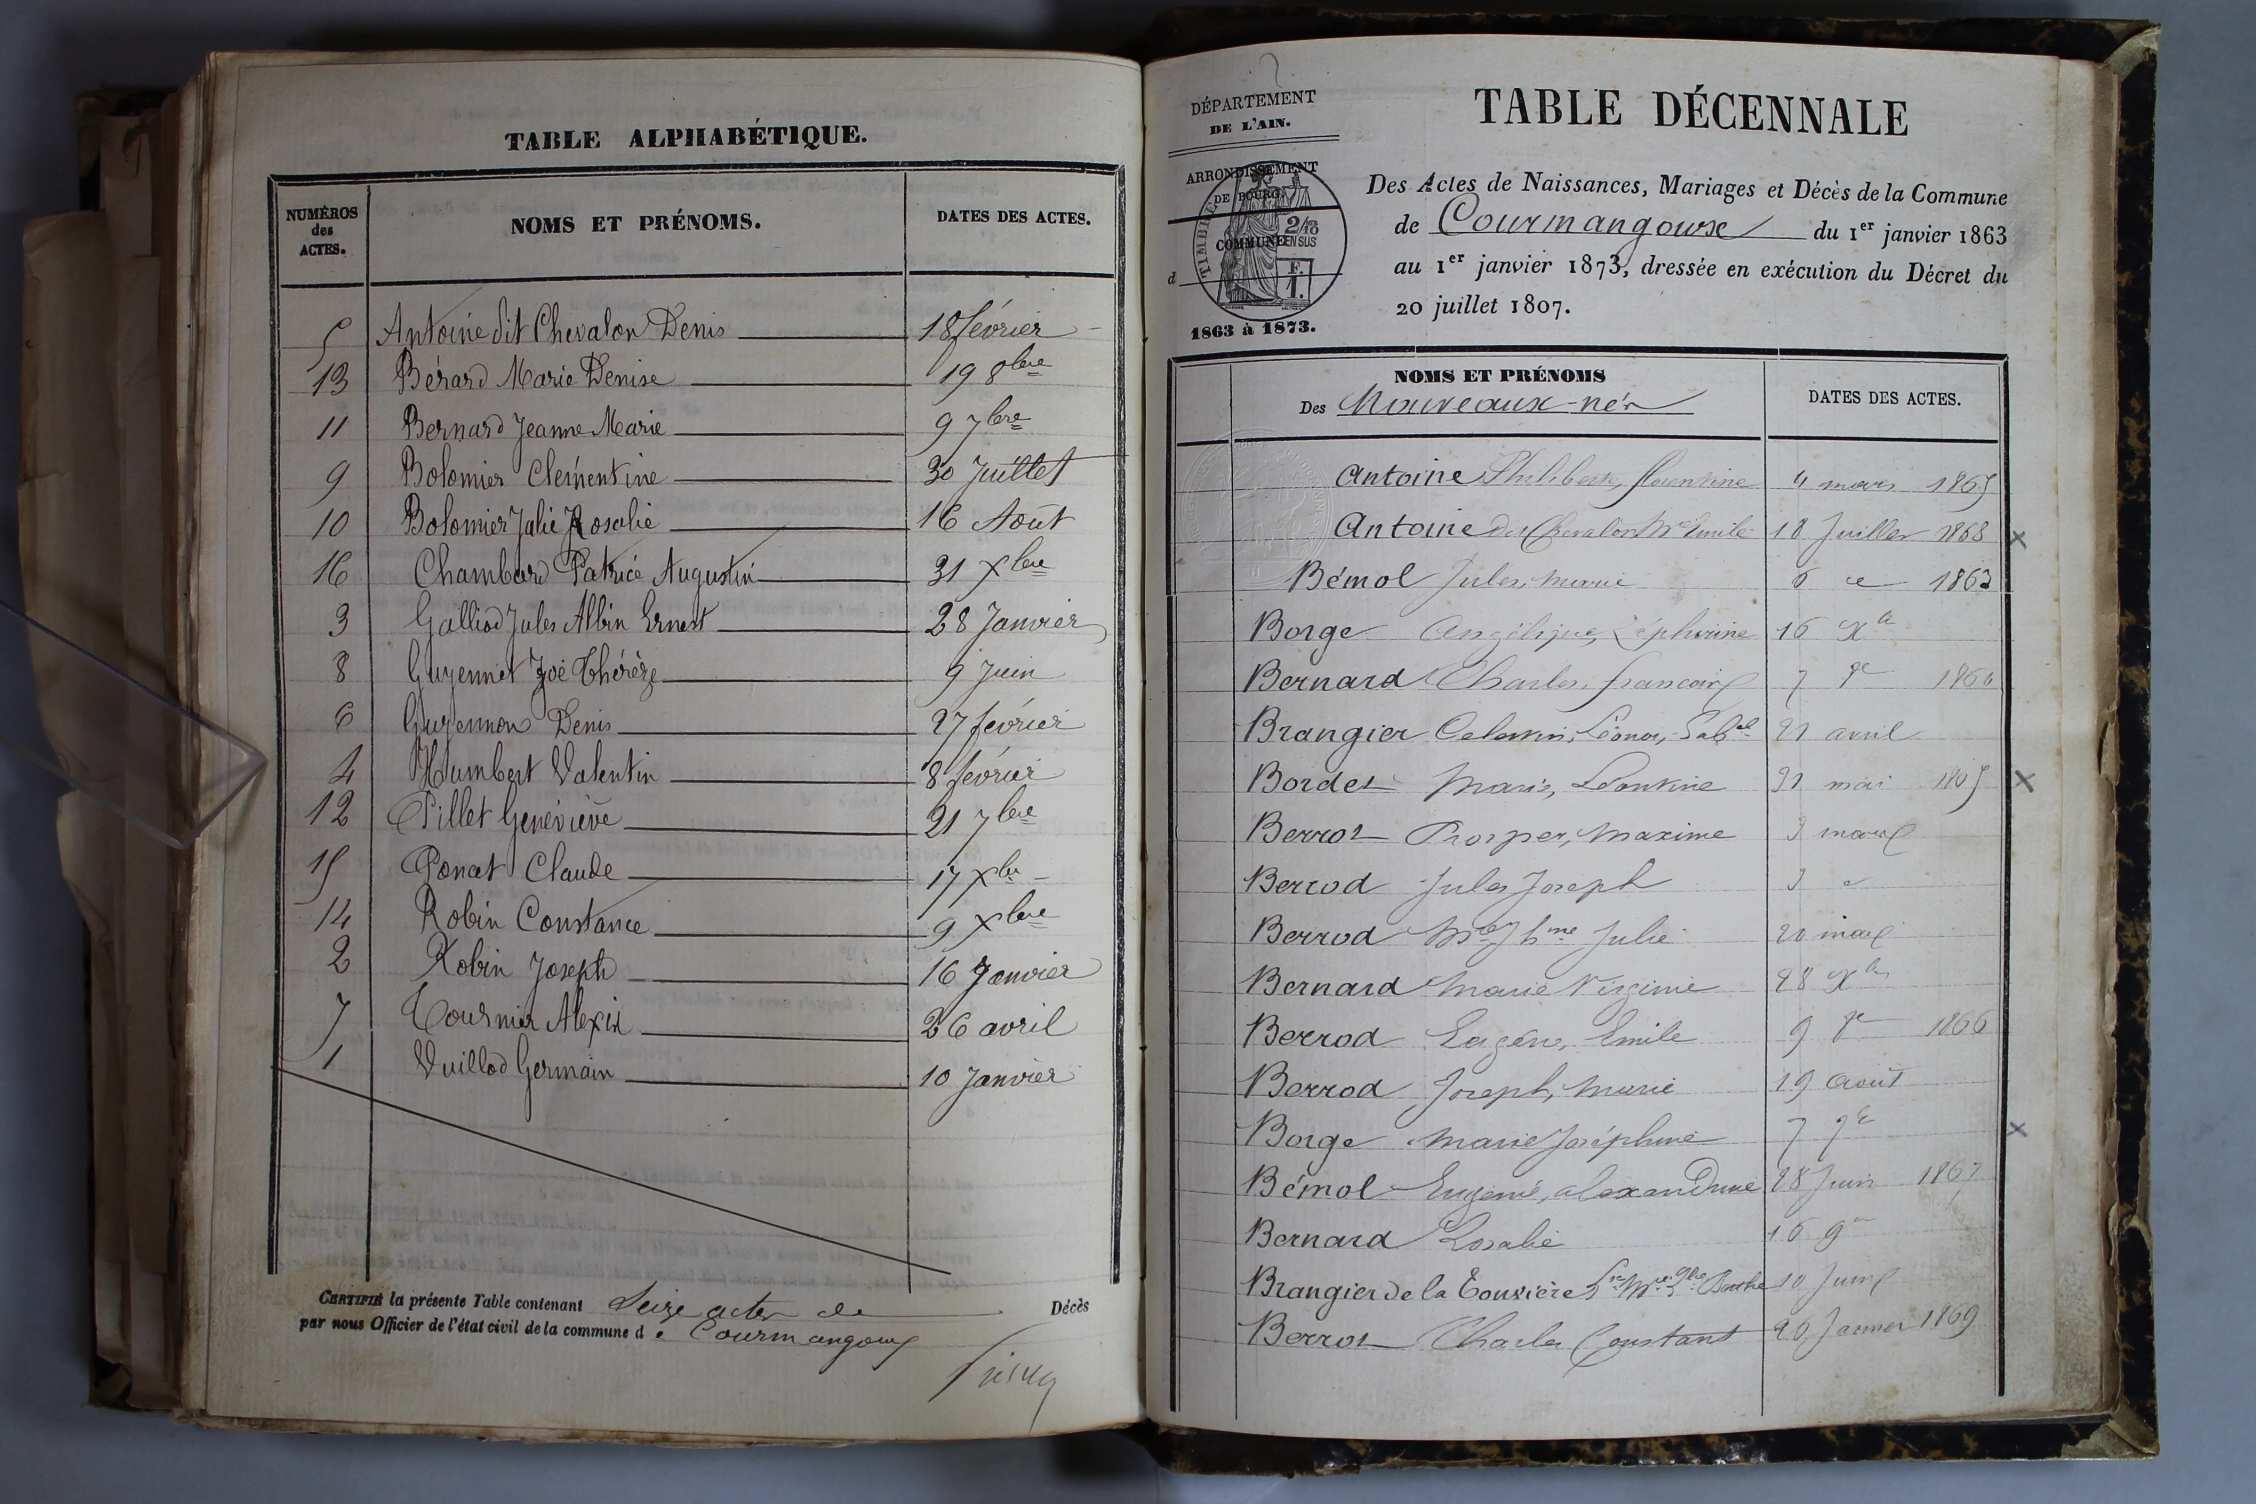 TABLE ALPHABÉTIQUE.
NUMÉROS des ACTES. NOMS ET PRÉNOMS. DATES DES ACTES.
5 Antoine dit Chevalon Denis 18 février
13 Bérard Marie Denise 19 8bre
11 Bernard Jeanne Marie 9 7bre
9 Bolomier Clémentine 30 Juillet
10 Bolomier Julie Rosalie 16 Août
16 Chambard Patrice Augustin 31 Xbre
3 Galliod Jules Albin Ernest 28 Janvier
8 Guyennet Zoé Thérèze 9 Juin
6 Guyennon Denis 27 février
4 Humbert Valentin 8 février
12 Pillet Geneviève 21 7bre
15 Ponat Claude 17 Xbre
14 Robin Constance 9 Xbre
2 Robin Joseph 16 Janvier
7 Tournier Alexis 26 avril
1 Vuillod Germain 10 Janvier
CERTIFIÉ la présente Table contenant Seize actes de Décès
par nous Officier de l'état civil de la commune d e Courmangoux
DÉPARTEMENT
DE L'AIN.
ARRONDISSEMENT
DE BOURG.
COMMUNE
d
TIMBRE
2/10
EN SUS
F.
1.
1863 à 1873.
TABLE DÉCENNALE
Des Actes de Naissances, Mariages et Décès de la Commune
de Courmangoux du 1er janvier 1863
au 1er janvier 1873, dressée en exécution du Décret du
20 juillet 1807.
NOMS ET PRÉNOMS
Des Nouveaux-nés DATES DES ACTES.
Antoine Philiberte, florentine 4 mars 1865
Antoine dit Chevalon Mie Emile 18 Juillet 1868 x
Bémol Jules, marie 6 1863
Borge Angélique, Zéphirine 16 Xbre
Bernard Charles, françois 7 186
Brangier Léonor, 21 avril
Bordet Marie, Léontine 31 mai 1865 x
Berrot Prosper, Maxime 3 mars
Berrod Jules Joseph 3
Berrod Julie 20 mars
Bernard Marie Virginie 28 Xbre
Berrod Eugène, Emile 9 1866
Berrod Joseph, Marie 19 août
Borge Marie Joséphine 7 9e x
Bémol Eugénie, alexandrine 28 Juin 1867
Bernard Rosalie 16 9e
Brangier de la Touvière Berthe 10 Juin
Berrot Charles Constant 20 Janvier 1869